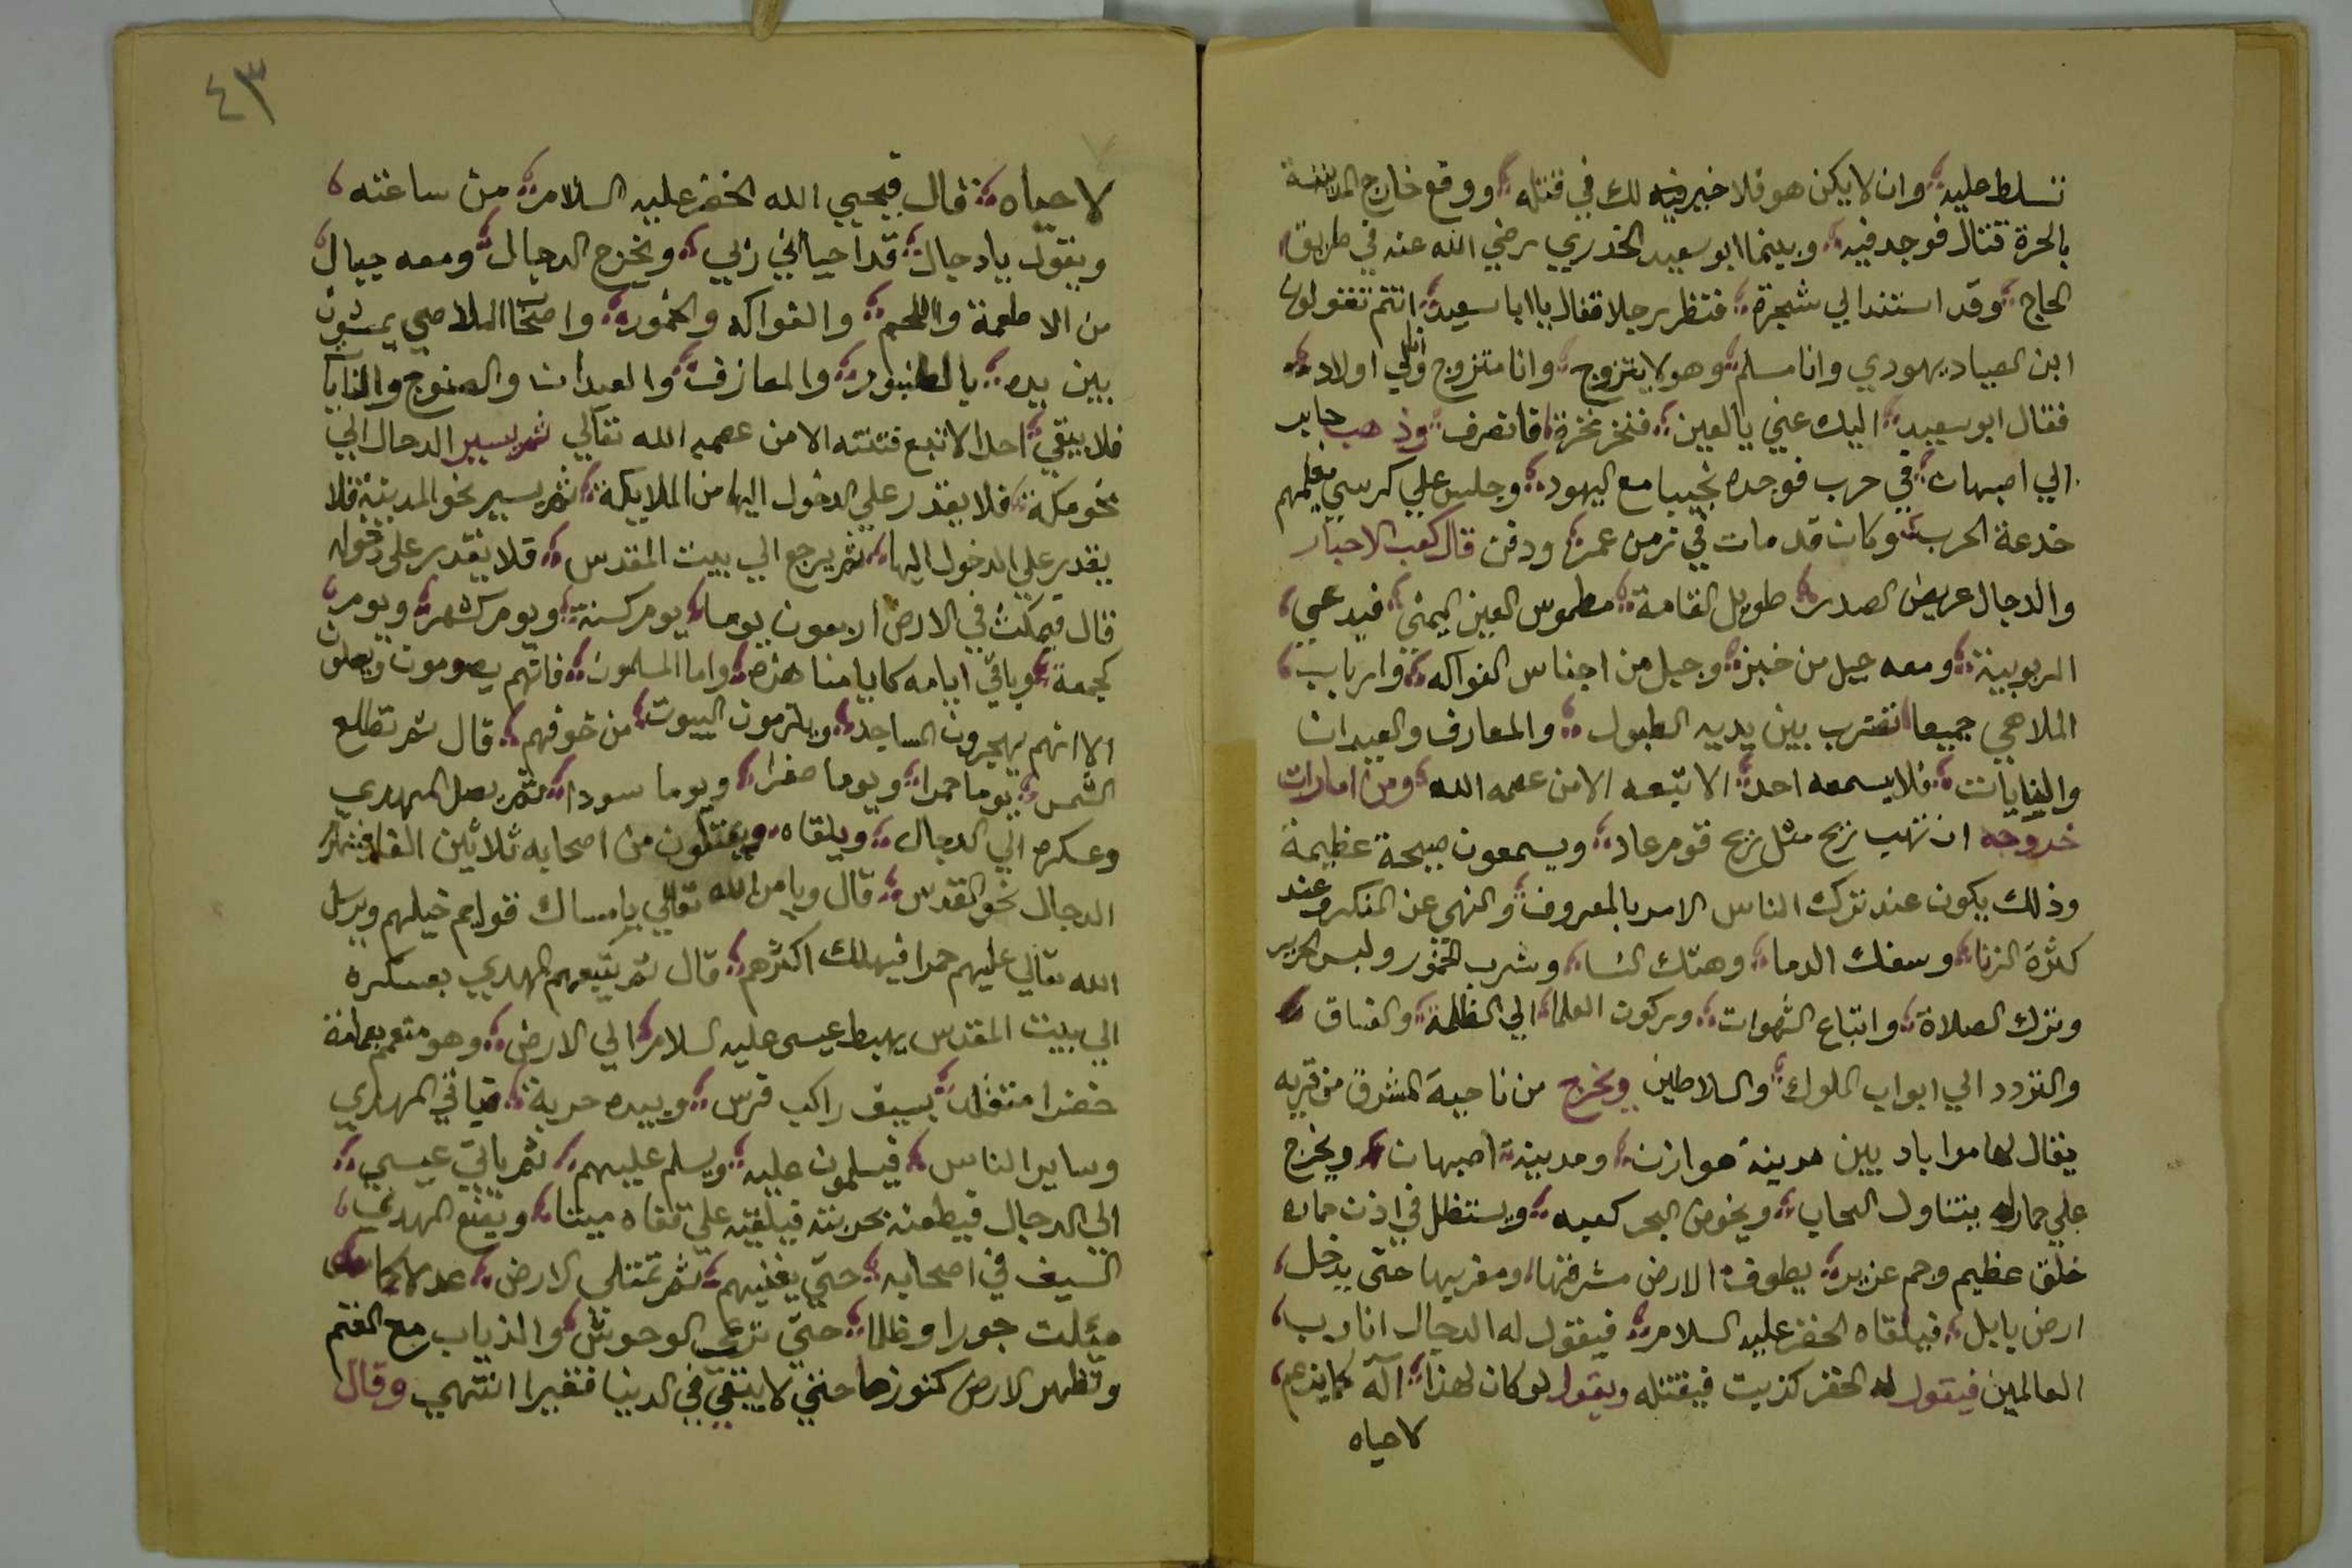 تسلط عليه وان لا يكن هو فلا خير فيه لك في قتله ووقع خارج المدينة
بالحرة قتال فوجد فيه وبينما ابو سعيد الخدري رضي الله عنه في طريق
الحاج وقد استند الي شجرة فنظر رجلا فقال يا ابا سعيد انتم تقولون
ابن الصياد يهودي وانا مسلم وهو لا يتزوج وانا متزوج ولي اولاد
فقال ابو سعيد اليك عني يا لعين فنخر نخرة فانصرف وذهب جابر
الي اصبهان في حرب فوجده نجيبا مع اليهود وجلس علي كرسي معلمهم
خدعة الحرب وكان قد مات في زمن عمر ودفن قال كعب الاحبار
والدجال عريض الصدر طويل القامة مطموس العين اليمني فيدعي
الربوبية ومعه جبل من خبز وجبل من اجناس الفواكه وارباب
الملاهي جميعا تضرب بين يديه الطبول والمعازف والعيدان
والنايات فلا يسمعه احد الا تبعه الا من عصمه الله ومن امارات
خروجه ان تهب ريح مثل ريح قوم عاد ويسمعون صيحة عظيمة
وذلك يكون عند ترك الناس الامر بالمعروف والنهي عن المنكر وعند
كثرة الزنا وسفك الدما وهتك النسا وشرب الخمور ولبس الحرير
وترك الصلاة واتباع الشهوات وركون العلما الي الظلمة والفساق
والتردد الي ابواب الملوك والسلاطين ويخرج من ناحية المشرق من قريه
يقال لها مراباد بين مدينة هوازن ومدينة اصبهان ويخرج
علي حمار له يتناول السحاب ويخوض البحر كعبه ويستظل في اذن حماره
خلق عظيم وجم غزير يطوف الارض مشرقها ومغربها حتي يدخل
ارض بابل فيلقاه الخضر عليه السلام فيقول له الدجال انا رب
العالمين فيقول له الخضر كذبت فيقتله ويقول لو كان لهذا اله كما يزعم
لاحياه
٤٣
لاحياه قال فيحيي الله الخضر عليه السلام من ساعته
ويقول يا دجال قد احياني ربي ويخرج الدجال ومعه جبال
من الاطعمة واللحم والفواكه والخمور واصحاب الملاهي يمشون
بين يديه بالطنبور والمعازف والعيدان والصنوج والنايات
فلا يبقي احد الا تبع فتنته الا من عصمه الله تعالي ثم يسير الدجال الي
نحو مكة فلا يقدر علي الدخول اليها من الملايكة ثم يسير نحو المدينة فلا
يقدر علي الدخول اليها ثم يرجع الي بيت المقدس فلا يقدر علي دخوله
قال فيمكث في الارض اربعون يوما يوم كسنة ويوم كشهر ويوم
كجمعة وباقي ايامه كايامنا هذه واما المسلمون فانهم يصومون ويصلون
الا انهم يهجرون المساجد ويلزمون البيوت من خوفهم قال ثم تطلع
الشمس يوما حمرا ويوما صفرا ويوما سودا ثم يصل المهدي
وعسكره الي الدجال ويلقاه ويقتلون من اصحابه ثلاثين الفا فينهزم
الدجال نحو القدس قال ويامر الله تعالي بامساك قوايم خيلهم ويرسل
الله تعالي عليهم حمرا فيهلك اكثرهم قال ثم يتبعهم المهدي بعسكره
الي بيت المقدس يهبط عيسي عليه السلام الي الارض وهو متعمم بعمامة
خضرا متقلد بسيف راكب فرس وبيده حربة فياتي المهدي
وساير الناس فيسلمون عليه ويسلم عليهم ثم ياتي عيسي
الي الدجال فيطعنه بحربته فيلقيه علي قفاه ميتا ويضع المهدي
السيف في اصحابه حتي يفنيهم ثم تمتلي الارض عدلا كما
ميلت جورا وظلما حتي ترعي الوحوش والذياب مع الغنم
وتظهر الارض كنوزها حتي لا يبقي في الدنيا فقيرا انتهي وقال